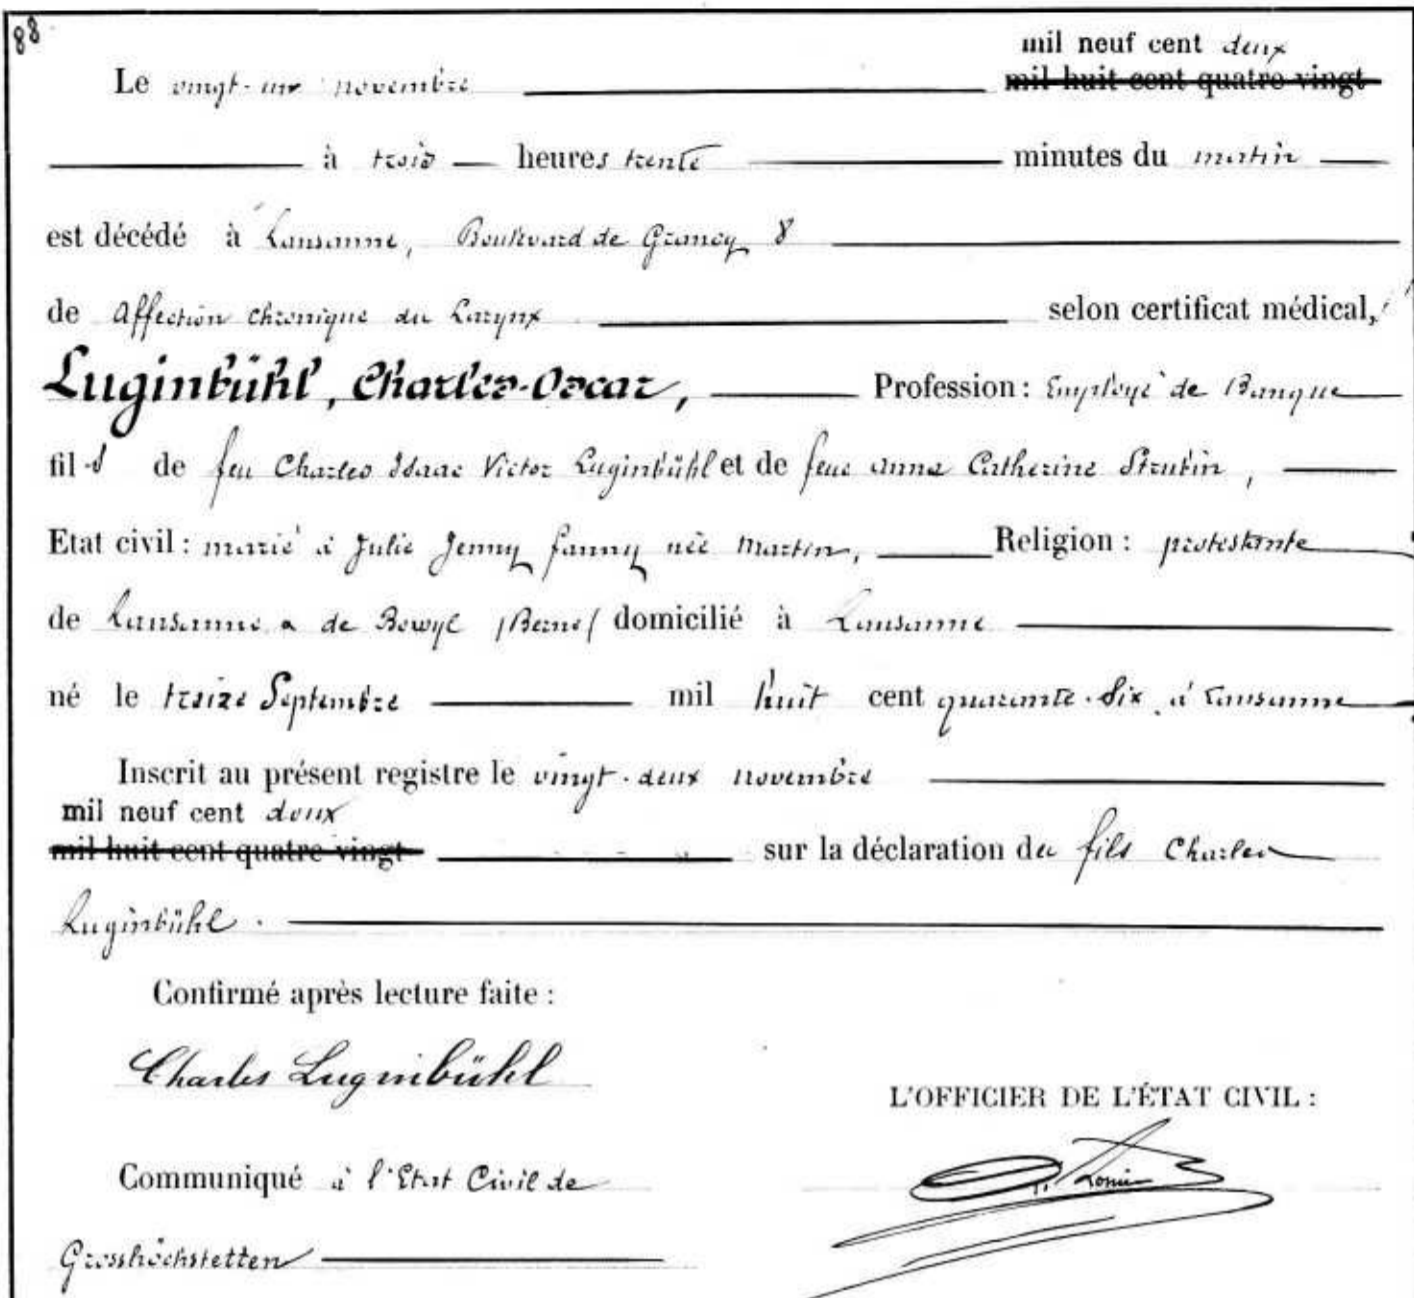 88
mil neuf cent deux
Le vingt-un novembre ~~mil huit cent quatre vingt~~
à trois heures trente minutes du matin
est décédé à Lausanne, Boulevard de Grancy 8
de Affection chronique du Larynx selon certificat médical,
Luginbühl, Charles-Oscar, Profession : Employé de Banque
fils de feu Charles Isaac Victor Luginbühl et de feue Anna Catherine Strubin,
Etat civil : marié à Julie Jenny fanny née Martin, Religion : protestante
de Lausanne & de Bowyl /Berne/ domicilié à Lausanne
né le treize Septembre mil huit cent quarante-six à Lausanne
Inscrit au présent registre le vingt-deux novembre
mil neuf cent deux
~~mil huit cent quatre vingt~~ sur la déclaration du fils Charles
Luginbühl.
Confirmé après lecture faite :
Charles Luginbühl
L'OFFICIER DE L'ÉTAT CIVIL :
Communiqué à l'Etat Civil de
Grosshöchstetten